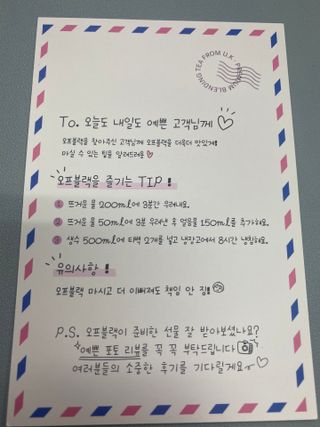 TEA FROM U.K · PREMIUM BLENDING
To. 오늘도 내일도 예쁜 고객님께
오프블랙을 찾아주신 고객님께 오프블랙을 더욱더 맛있게!
마실 수 있는 팁을 알려드려요
오프블랙을 즐기는 TIP!
1 뜨거운 물 200ml에 3분간 우려내요.
2 뜨거운 물 50ml에 3분 우려낸 후 얼음물 150ml를 추가해요.
3 생수 500ml에 티백 2개를 넣고 냉장고에서 8시간 냉침해요.
유의사항!
오프블랙 마시고 더 이뻐져도 책임 안 짐!
P.S. 오프블랙이 준비한 선물 잘 받아보셨나요?
예쁜 포토 리뷰를 꼭 꼭 부탁드립니다
여러분들의 소중한 후기를 기다릴게요~